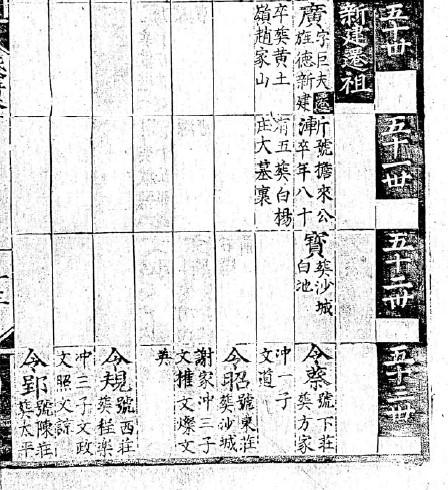 五十世
新建遷祖
廣字巨夫遷
旌德新建
卒葬黃土
嶺趙家山
五十一世
㳙號擔來公
卒年八十
有五葬白楊
庄大墓裏
五十二世
寶葬沙城
白池
五十三世
令蔡號下莊
葬方家
冲一子
文道
令昭號東莊
葬沙城
謝家冲三子
文推文燦文
英
令規號西莊
葬程梁
冲三子文政
文照文訢
令郢號陳莊
葬太平